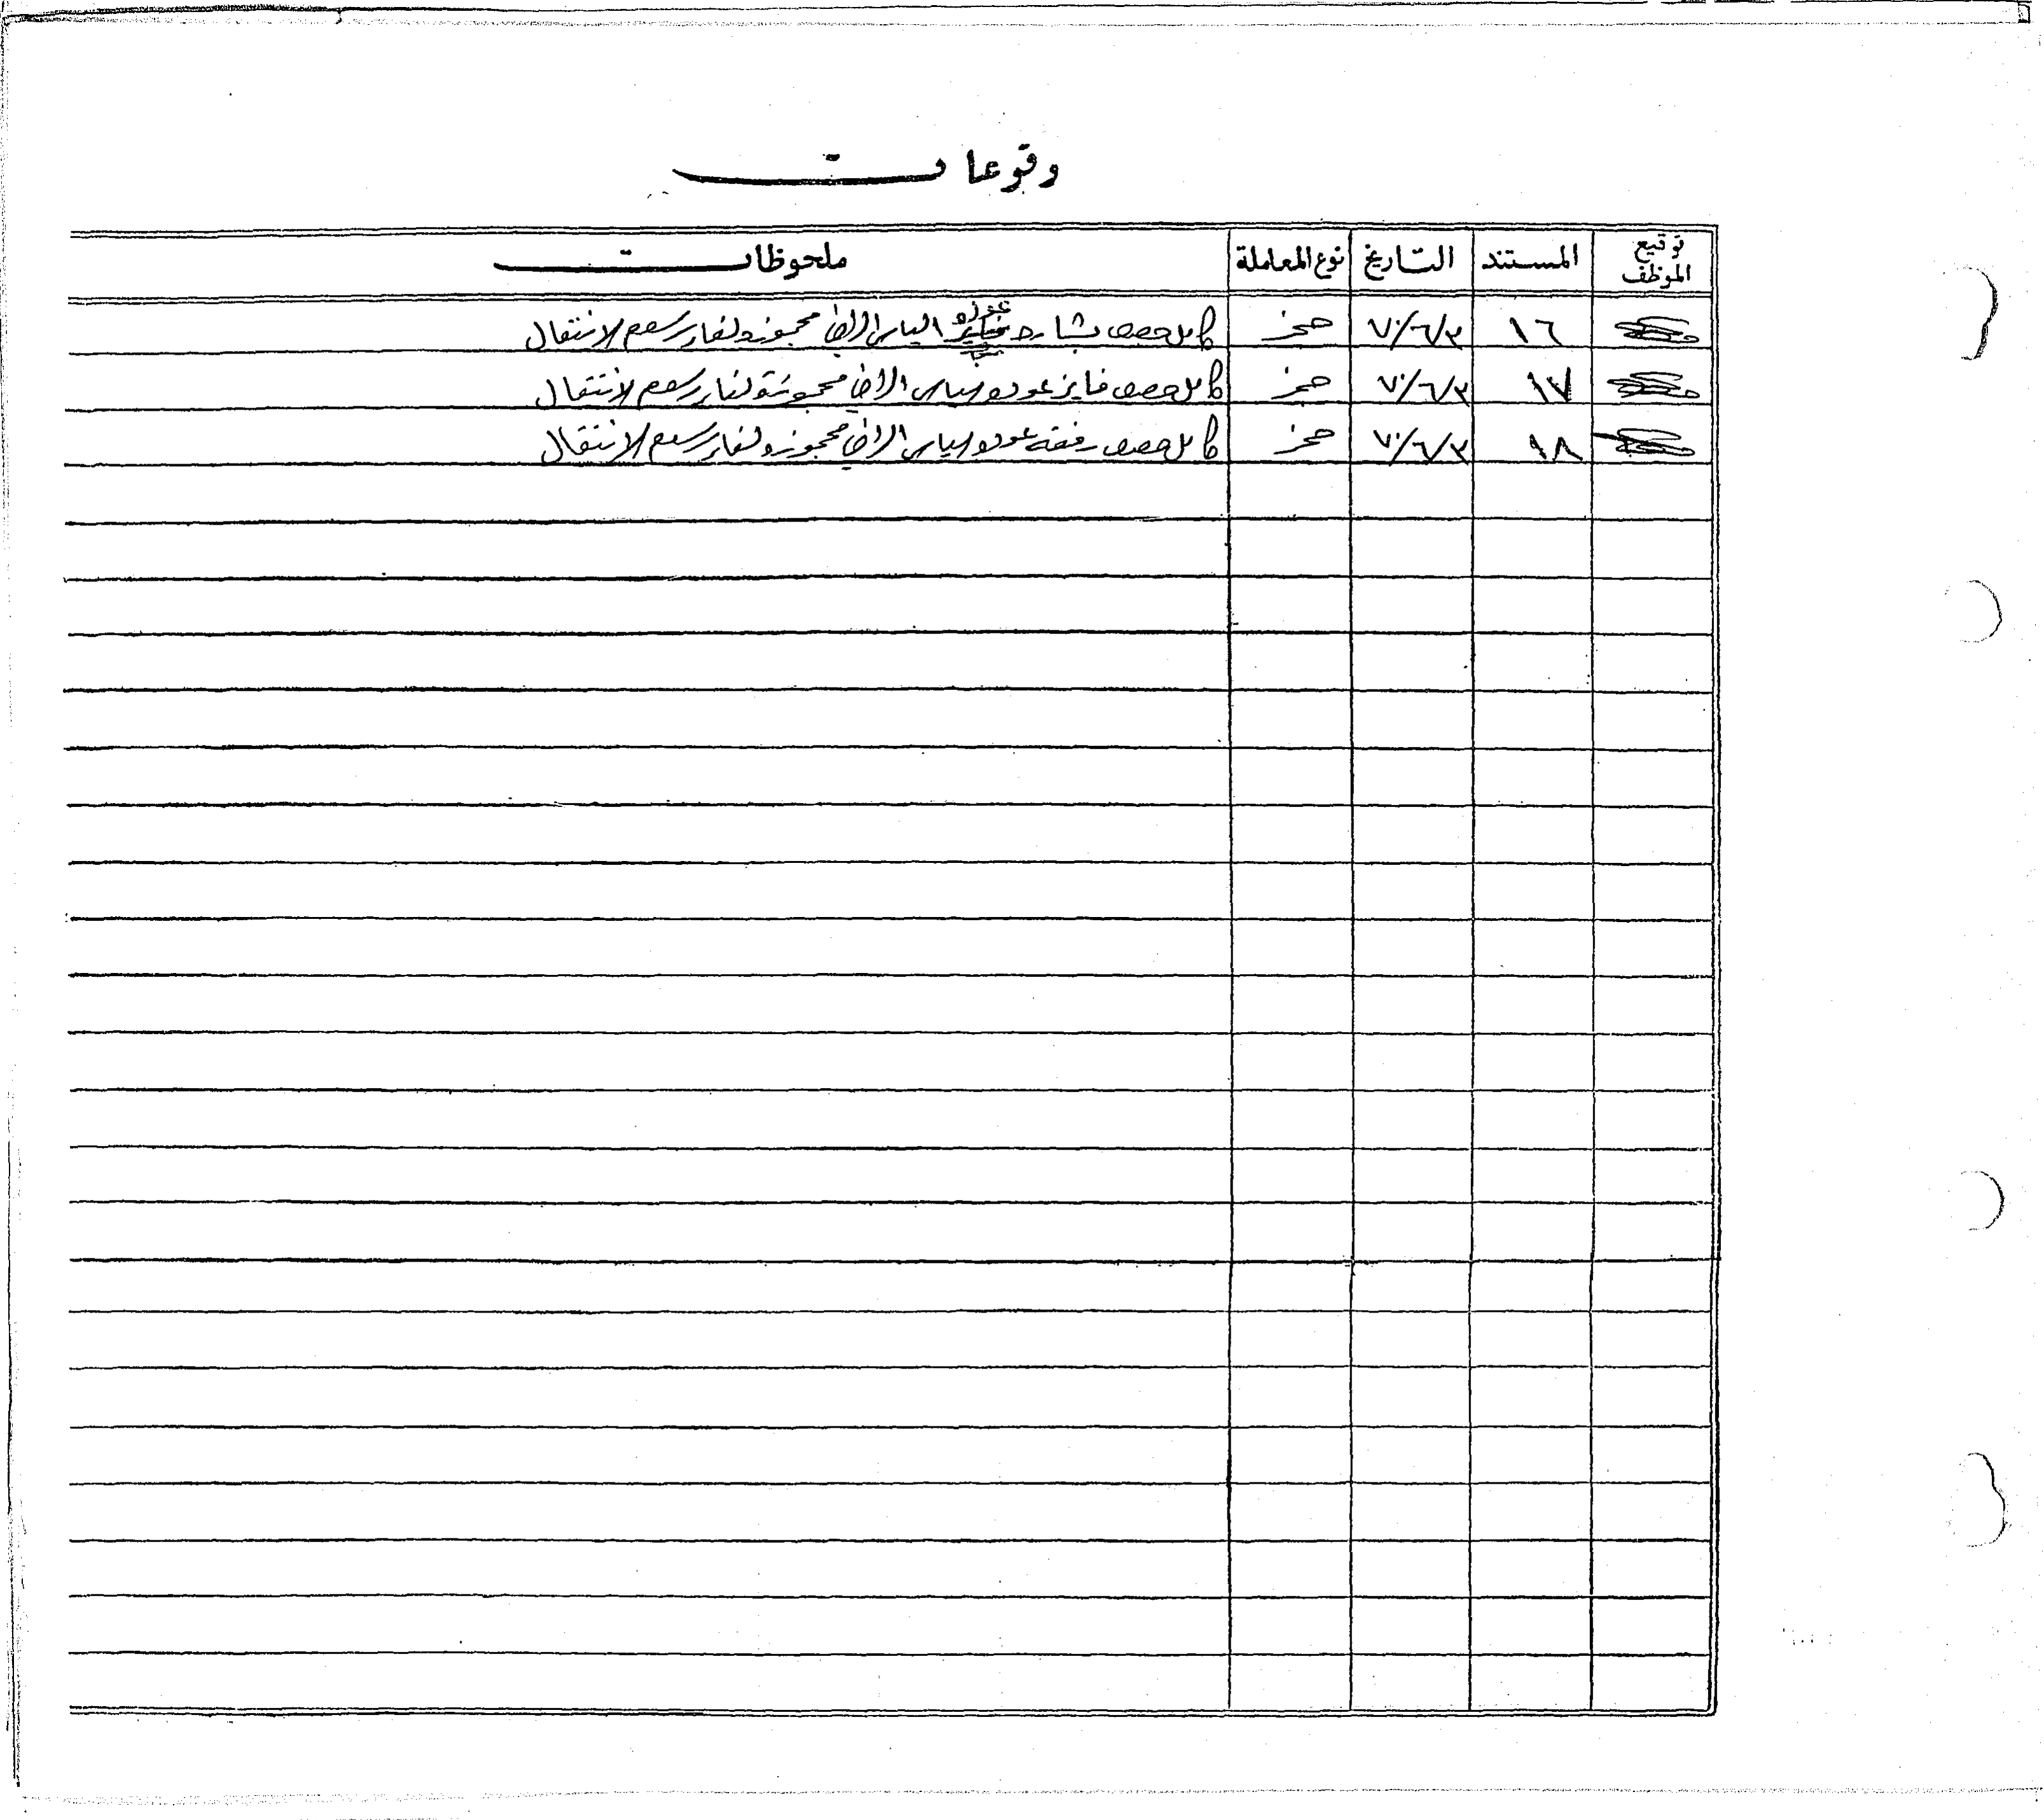 وقوعات
توقيع الموظف المستند التاريخ نوع المعاملة ملحوظات
١٦ ٧٠/٦/٣ حجز كامل حصص بشاره عوده الياس الراضي محجوزه لقاء رسوم الانتقال
١٧ ٧٠/٦/٣ حجز كامل حصص فايز عوده الياس الراضي محجوزة لقاء رسوم الانتقال
١٨ ٧٠/٦/٣ حجز كامل حصص رفقه عوده الياس الراضي محجوزه لقاء رسوم الانتقال